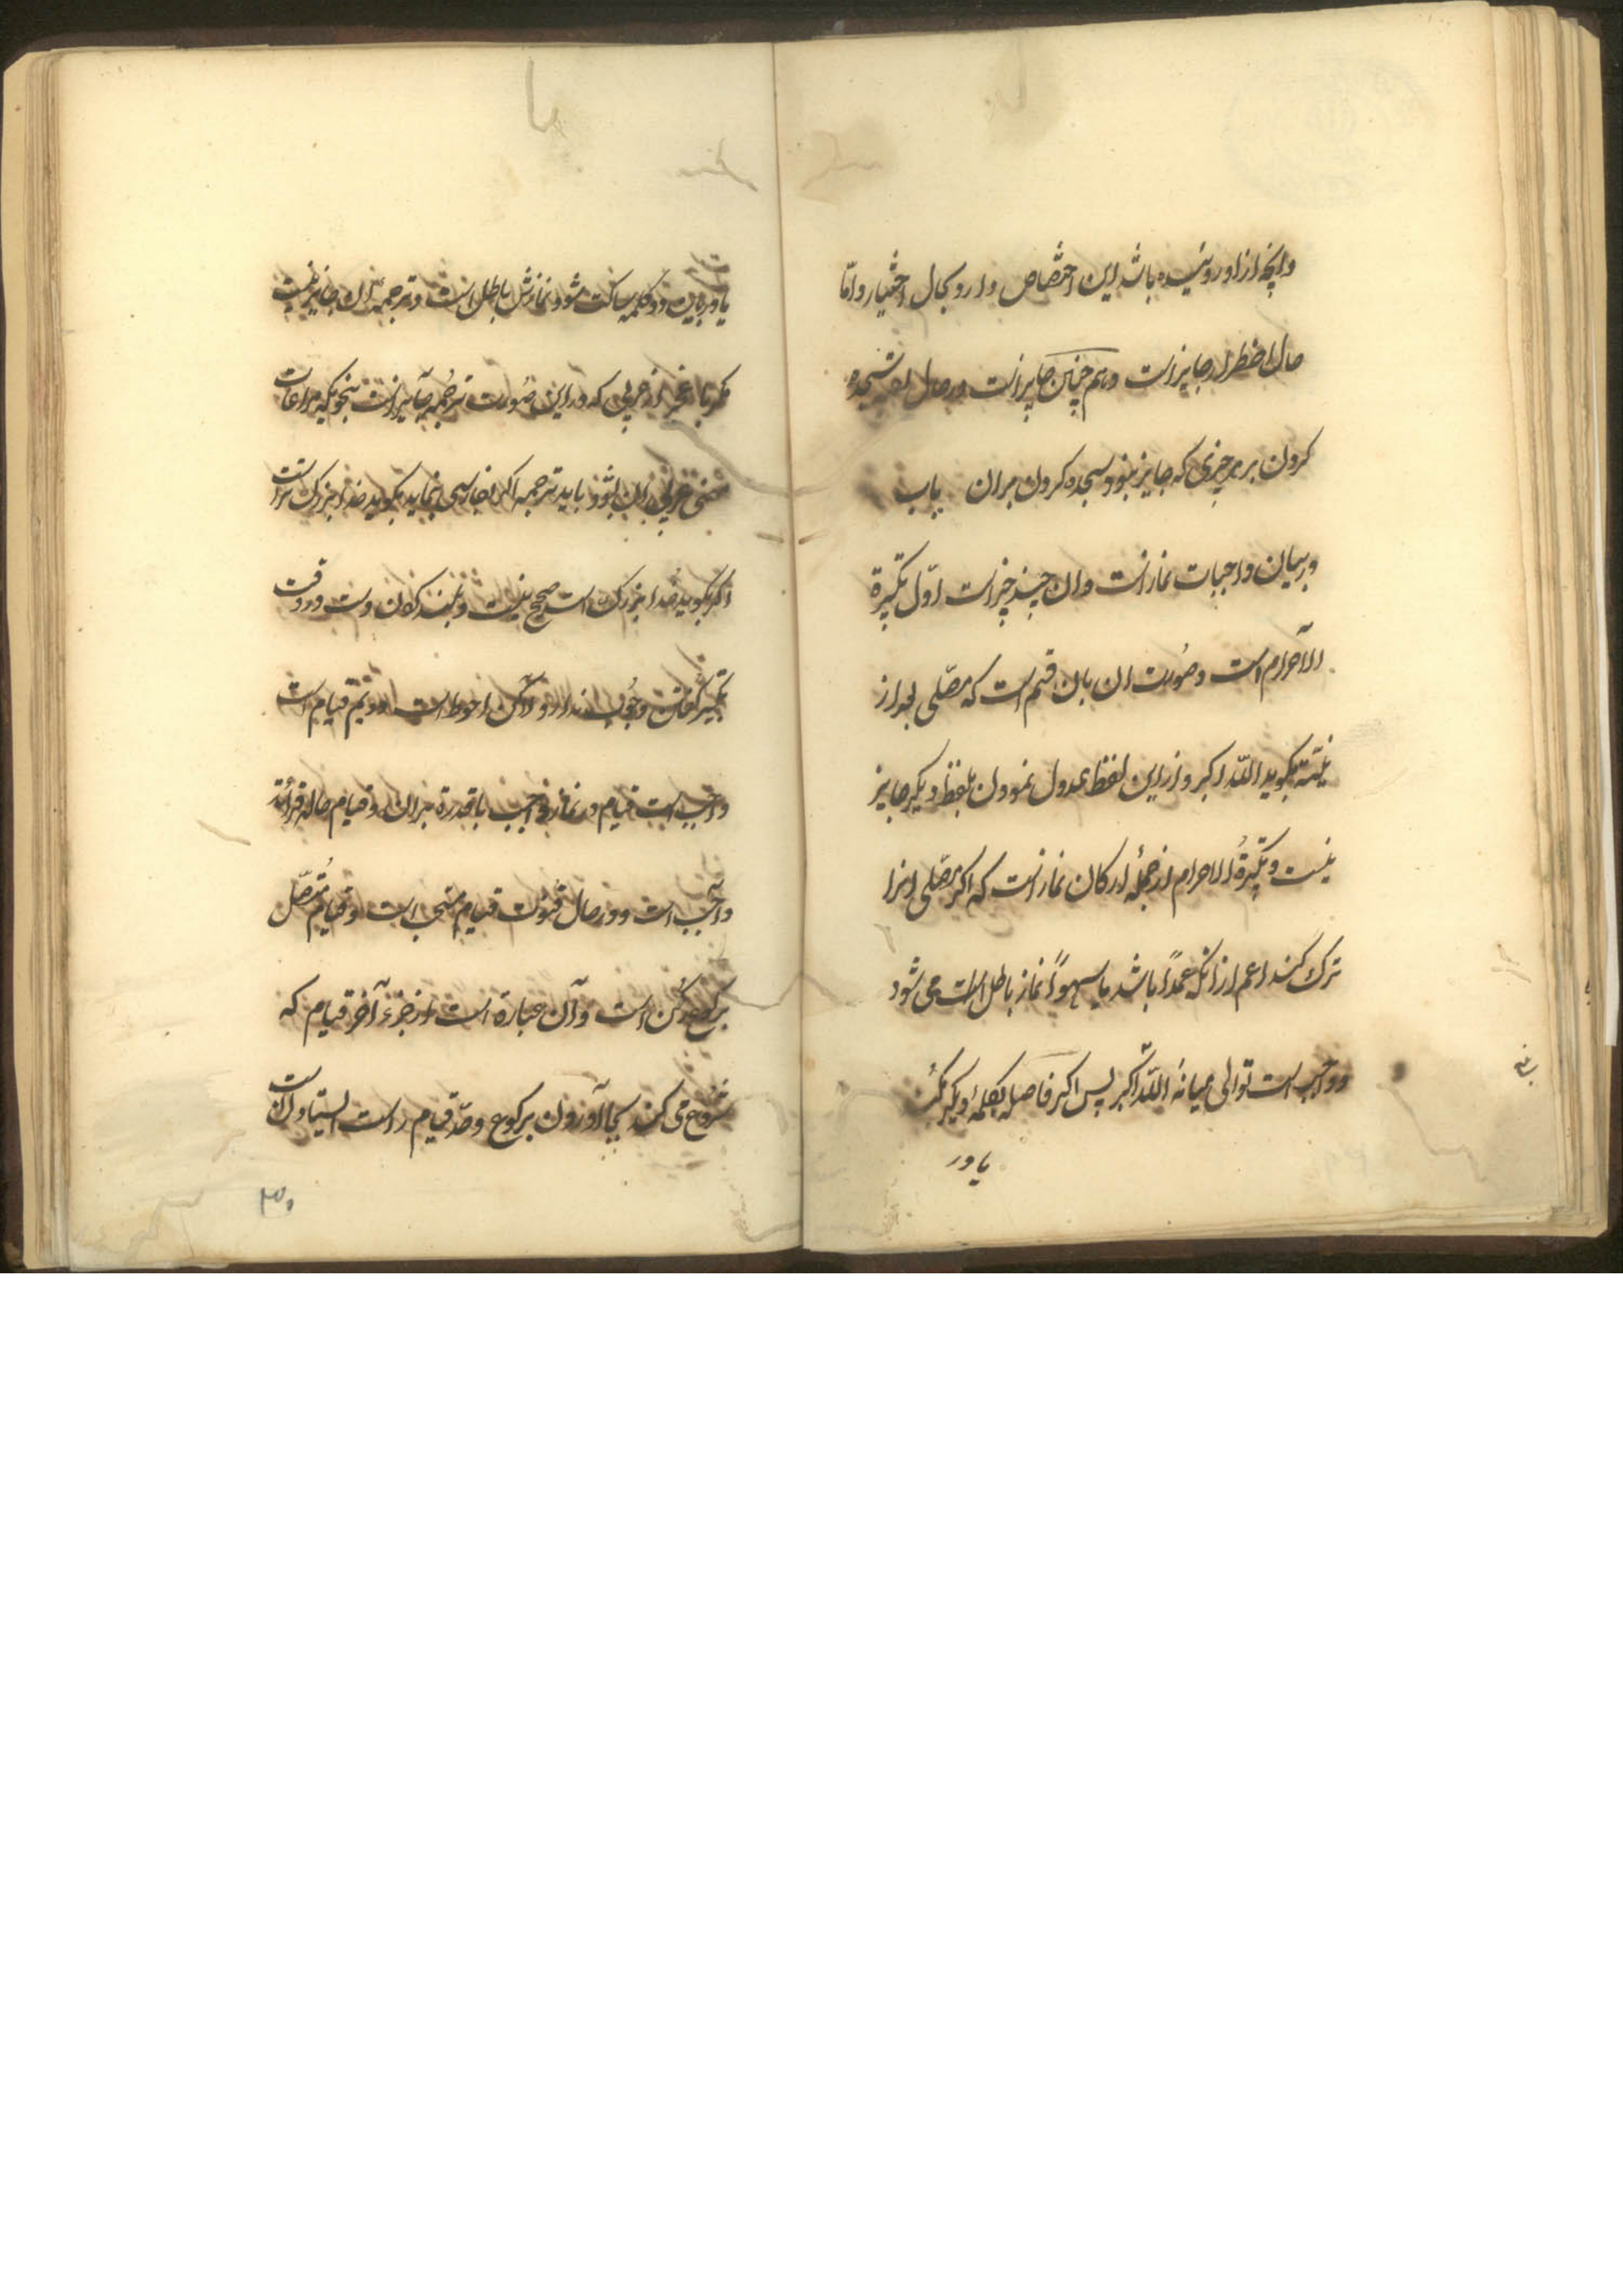 وانچه از او روئیده باشد این اختصاص دارد بحال اختیار و امّا
حال اضطرار جایز است و هم چنین جایز است در حال تقیه سجده
کردن بر هر چیزی که جایز نبود سجده کردن بران باب
در بیان واجبات نماز است و ان چند چیز است اوّل تکبیرة
الاحرام است و صُورت ان بان قسم است که مصّلی بعد از
نیّته بکوید اللّه اکبر و از این لفظ عدول نمودن بلفظ دیکر جایز
نیست و تکبیرةُ الاحرام از جملهٔ ارکان نماز است که اکر مصّلی انرا
ترک کند اعم از انکه عمدًا باشد یا سهوًا نماز باطل است می شود
و واجب است توالی میانهٔ اللّه اکبر پس اکر فاصله بکلمهٔ دیکر بکند
یا در
یا در ما بین دو کلمه ساکت شود نمازش باطل است و ترجمهٔ ان جایز نیست
مکر با عجز از عربی که در این صُورت ترجُمه جایز است بنحویکه مراعات
معنی عربی ان بشود باید ترجمه اکر بفارسی بنماید بکوید خدا بزرک تر است
اکر بکوید خدا بزرک است صحیح نیست و بلند کردن دست در وقت
تکبیر کفتن وجُوب ندارد و لکن احوط است دویم قیام است
واجب است قیام در نماز واجب با قدرة بران و قیام حال قرائة
واجب است و در حال قنوت قیام مستحب است و قیام مُتصّل
برکوع رُکن است و آن عبارة است از جزء آخر قیام که
شروع می کند بجا آوردن برکوع و حدّ قیام راست ایستادن است
۳۰